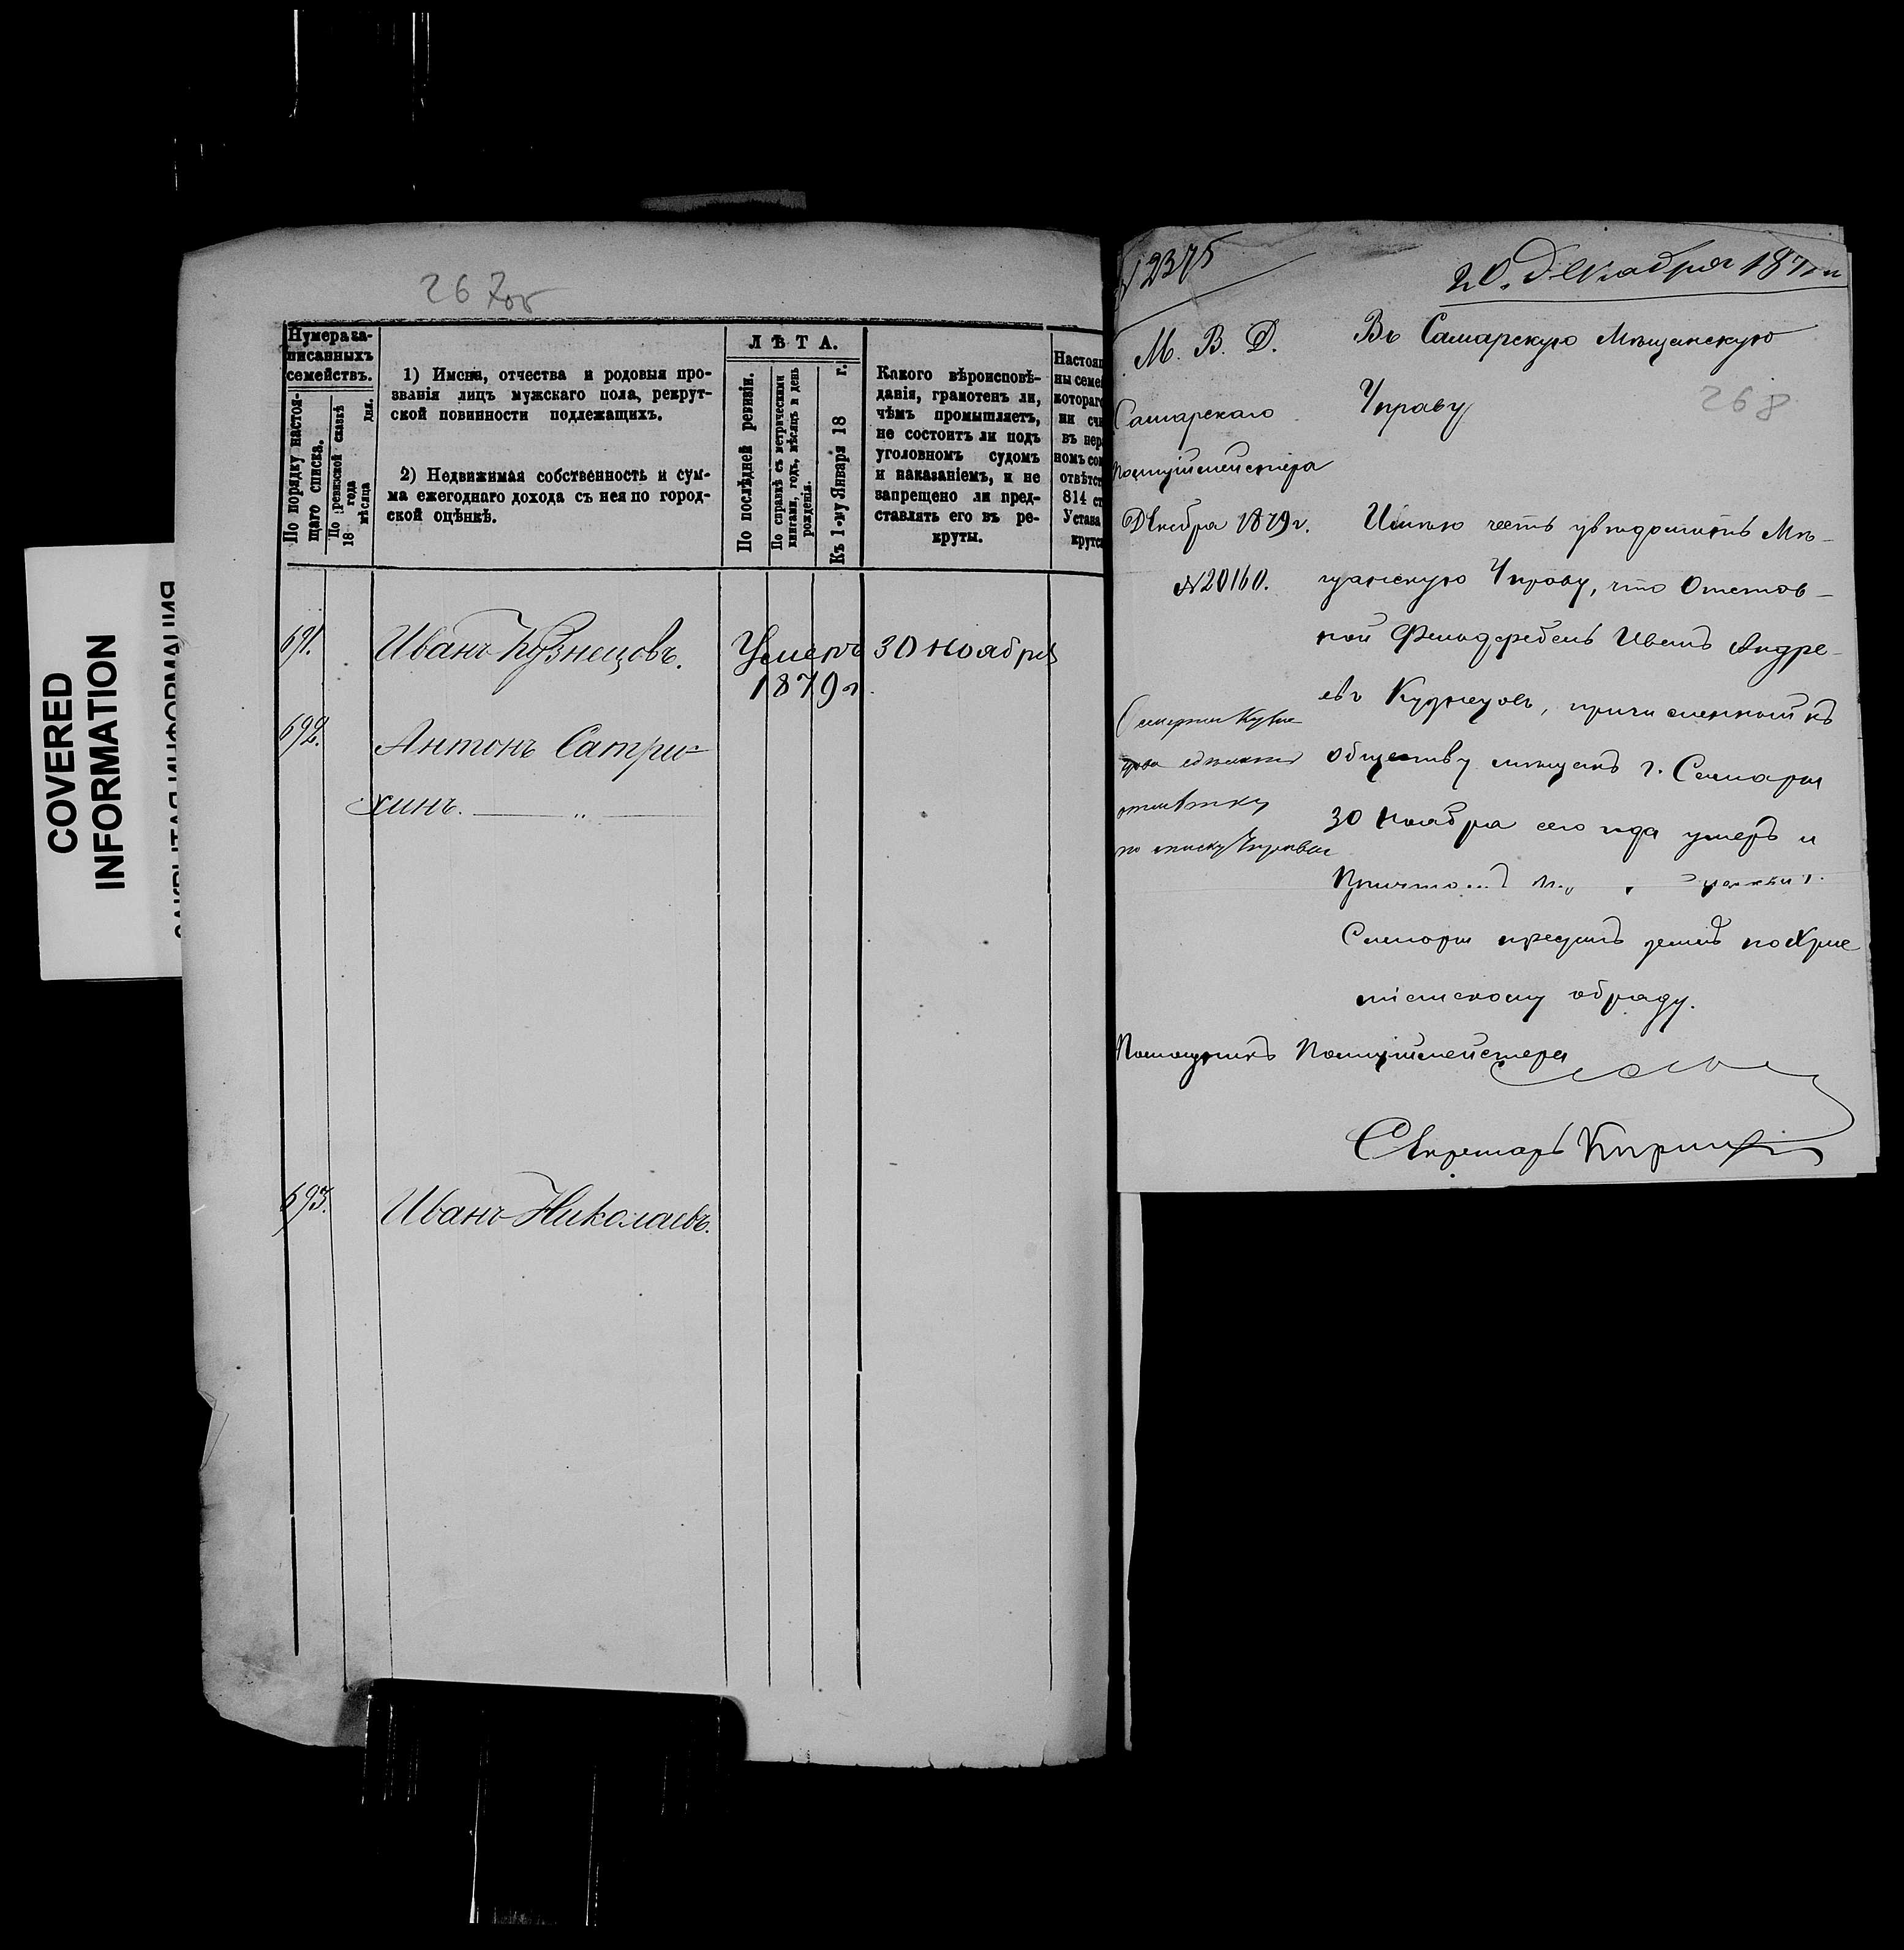 COVERED
INFORMATION
267об
Нумера за-
писанныхъ
семействъ.
По порядку настоя-
щаго списка.
По ревизской сказкѣ
18 года
мѣсяца дня.
1) Имена, отчества и родовыя про-
званія лицъ мужскаго пола, рекрут-
ской повинности подлежащихъ.
2) Недвижимая собственность и сум-
ма ежегоднаго дохода съ нея по город-
ской оцѣнкѣ.
ЛѢТА.
По послѣдней ревизіи.
По справкѣ съ метрическими
книгами, годъ, мѣсяцъ и день
рожденія.
Къ 1-му Января 18 г.
Какого вѣроисповѣ-
данія, грамотенъ ли,
чѣмъ промышляетъ,
не состоитъ ли подъ
уголовномъ судомъ
и наказаніемъ, и не
запрещено ли пред-
ставлять его въ ре-
круты.
Настоя
ны семе
котораг
ли сч
въ пер
номъ со
отвѣтс
814 ст
Устава
крутс
691. Иванъ Кузнецовъ. Умеръ 30 ноября
1879 г.
692. Антонъ Сатрю-
хинъ.
693. Иванъ Николаевъ.
№ 2375
20. Декабря 187
М. В. Д.
Самарскаго
Полиціймейстера
Декабря 1879 г.
№ 20160.
Въ Самарскую Мѣщанскую
Управу
268
Имѣю честь увѣдомить Мѣ-
щанскую Управу, что Отстав-
ной Фельдфебель Иванъ Андре-
евъ Кузнецовъ, причисленный къ
обществу мѣщанъ г. Самары
30 Ноября сего года умеръ и
Самары преданъ землѣ по Хрис
тіанскому обряду.
О смерти Кузне
цова сдѣлать
отмѣтку
по списку Управы
Помощникъ Полиціймейстера
Секретарь